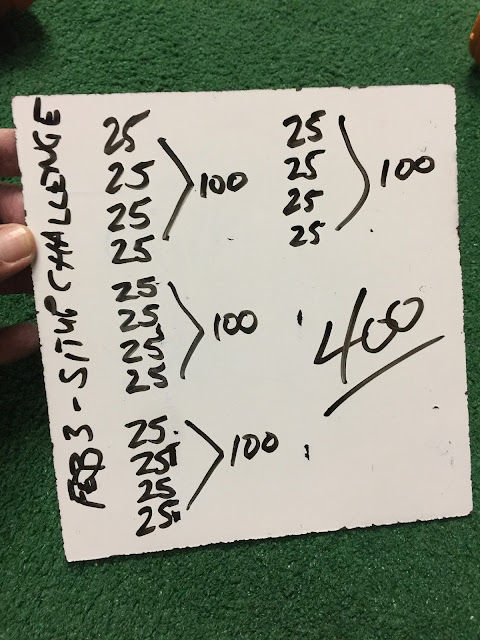 FEB 3 - SITUP CHALLENGE
25
25
25
25
100
25
25
25
25
100
25
25
25
25
100
25
25
25
25
100
400